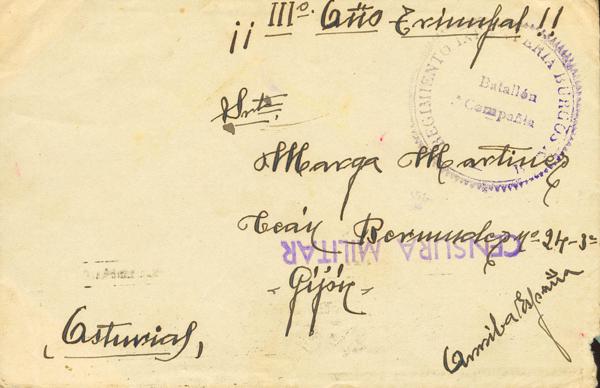 ¡¡ IIIº. Año Triunfal !!
REGIMIENTO INFANTERIA BURGOS
Batallón
Compañia
Srta.
Marga Martinez
Ceán Bermudez nº 24-3º
CENSURA MILITAR
- Gijón -
Arriba España
(Asturias)